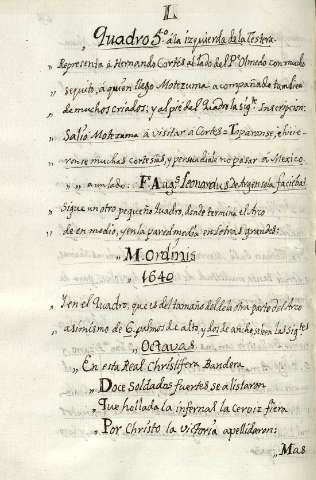 L
Quadro 5º á la izquierda de la Testera.
„ Representa á Hernando Cortés al lado del Pe Olmedo con mucho
„ seguito, á quien llego Motezuma acompañado tambien
„ de muchos criados; y al pie del Quadro la sigte Inscripcion:
„ Salio Motezuma á visitar á Cortés = Toparonse, é hicie-
„ ronse muchas cortesias, y persuadiale no pasar á Mexico
„ „ á un lado: F. Augs. Leonardus de Argensola facieba
„ Sigue un otro pequeño Quadro, donde termina el Arco
„ de en medio, y en la pared media en letras grandes:
„ M. Ordinis
„ 1640
„ Y en el Quadro, que es del tamaño del de la otra parte del Arco
„ asimismo de 6. palmos de alto, y dos de ancho estan las Sigtes
„ Octavas
„ En esta Real Christifera Bandera
„ Doce Soldados fuertes se alistaron
„ Que hollada la infernal la Cerviz fiera
„ Por Christo la victoria apellidaron:
„ Mas